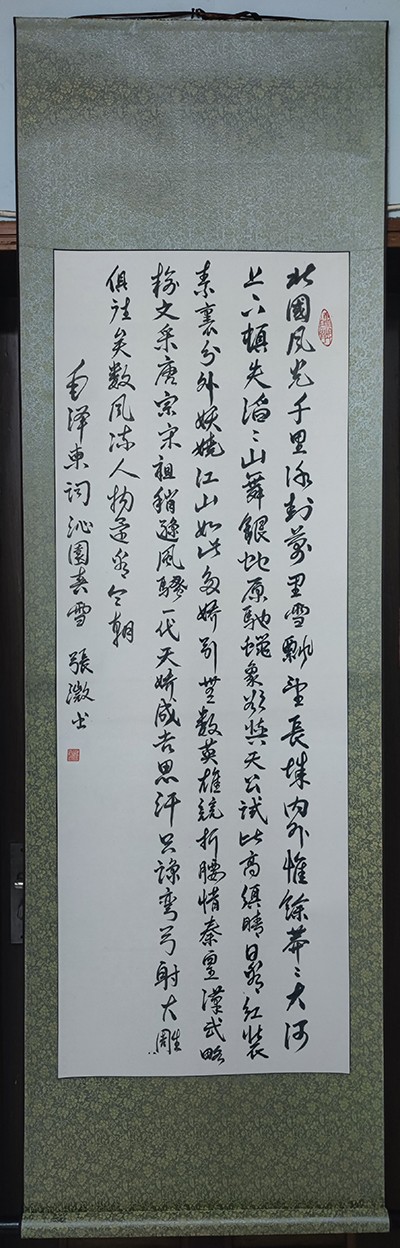 北國风光千里冰封萬里雪飄望長城内外惟餘莽〻大河
上下頓失滔〻山舞銀蛇原馳蠟象欲與天公試比高須晴日看红裝
素裹分外妖嬈江山如此多嬌引無數英雄競折腰惜秦皇漢武略
輸文采唐宗宋祖稍遜風騷一代天嬌成吉思汗只識彎弓射大雕
俱往矣數风流人物還看今朝
毛泽東词沁園春雪 張澂书